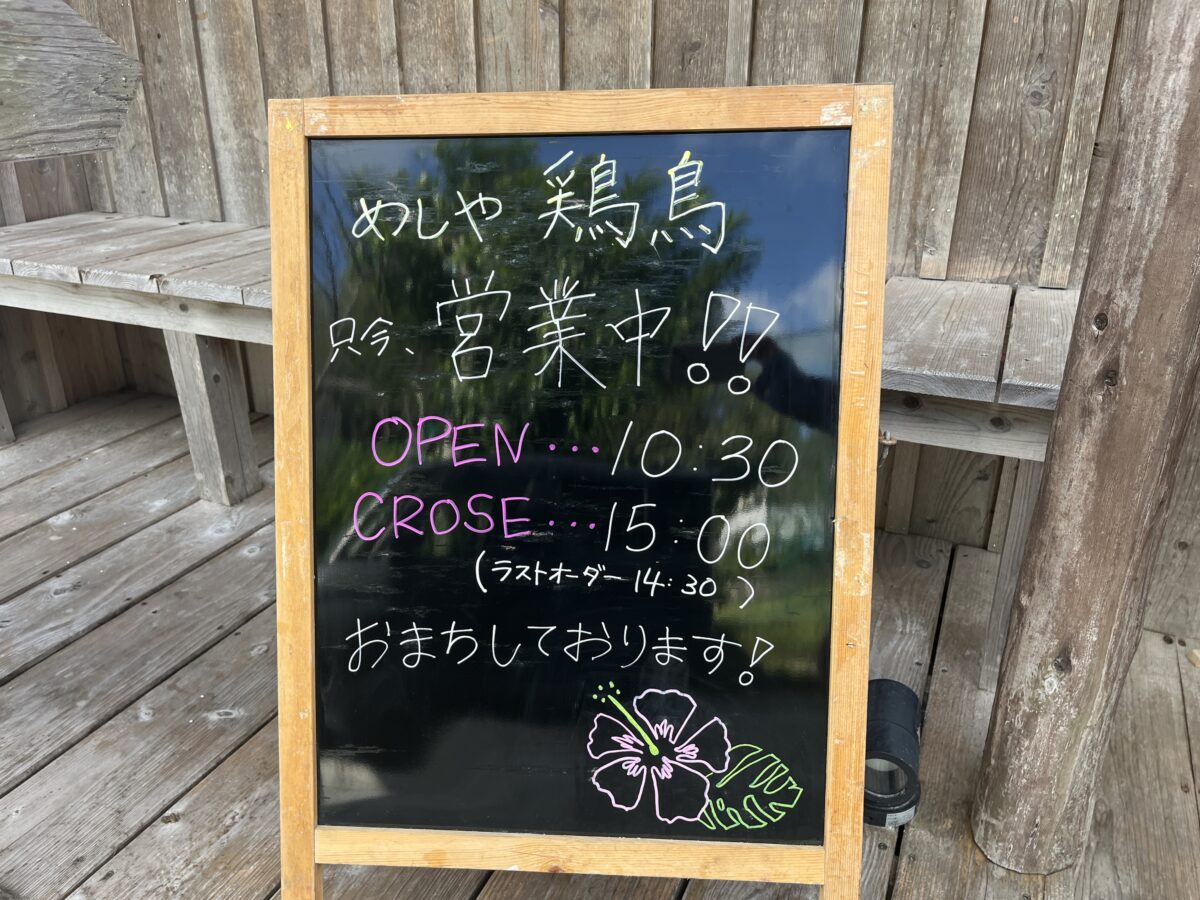 めしや 鶏鳥
只今、営業中!!
OPEN…10:30
CROSE…15:00
(ラストオーダー 14:30)
おまちしております!